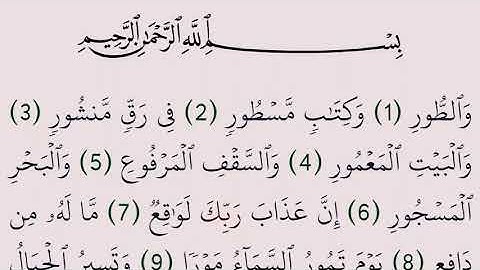 بِسْمِ ٱللَّهِ ٱلرَّحْمَٰنِ ٱلرَّحِيمِ
وَٱلطُّورِ (1) وَكِتَٰبٍ مَّسْطُورٍ (2) فِى رَقٍّ مَّنشُورٍ (3)
وَٱلْبَيْتِ ٱلْمَعْمُورِ (4) وَٱلسَّقْفِ ٱلْمَرْفُوعِ (5) وَٱلْبَحْرِ
ٱلْمَسْجُورِ (6) إِنَّ عَذَابَ رَبِّكَ لَوَٰقِعٌ (7) مَّا لَهُۥ مِن
دَافِعٍ (8) يَوْمَ تَمُورُ ٱلسَّمَآءُ مَوْرًا (9) وَتَسِيرُ ٱلْجِبَالُ